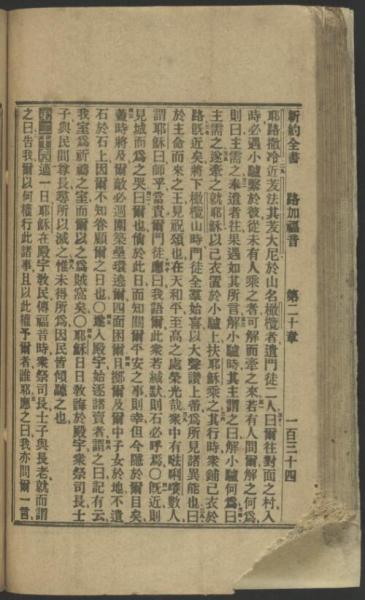 新約全書　路加福音　第二十章　一百三十四
耶路撒冷近及伯法其及伯大尼於山名橄欖者遣門徒二人曰爾往對面之村入
時必遇小驢繫於彼從未有人乘之者可解而牽之來若有人問爾解之何爲
則曰主需之奉遣者往果遇如其所言解小驢時其主謂之曰解小驢何爲曰
主需之遂牽之就耶穌以己衣置於小驢上扶耶穌乘之其行時衆鋪己衣於
路旣近矣將下橄欖山時門徒全羣始喜以大聲讚上帝爲所見諸異能也曰
於主命而來之王見祝頌也在天和平至高之處榮光哉衆中有𠵽唎㘔數人
謂耶穌曰師乎當責爾門徒應曰我語爾此衆若緘默則石必呼焉〇旣近則
見城而爲之哭曰爾也惝於此日而知關爾平安之事則幸但今隱於爾目矣
蓋時將及爾敵必週圍築壘環遶爾四面困爾且擲爾及爾中子女於地不遺
石於石上因爾不知眷顧爾之日也〇遂入殿宇始逐諸賣者語之曰記有云
我室爲祈禱之室而爾以之爲賊窩矣〇耶穌日日教誨於殿宇衆祭司長士
子與民間尊長尋所以滅之惟未得所爲因民皆傾聽之也
適一日耶穌在殿宇教民傳福音時衆祭司長士子與長老就而謂
之曰告我爾以何權行此諸事且以此權予爾者誰耶應之曰我亦問爾一言